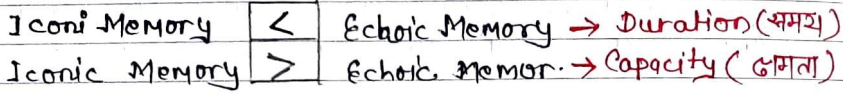 Iconi Memory < Echoic Memory → Duration (समय)
Iconic Memory > Echoic Memor. → Capacity (क्षमता)